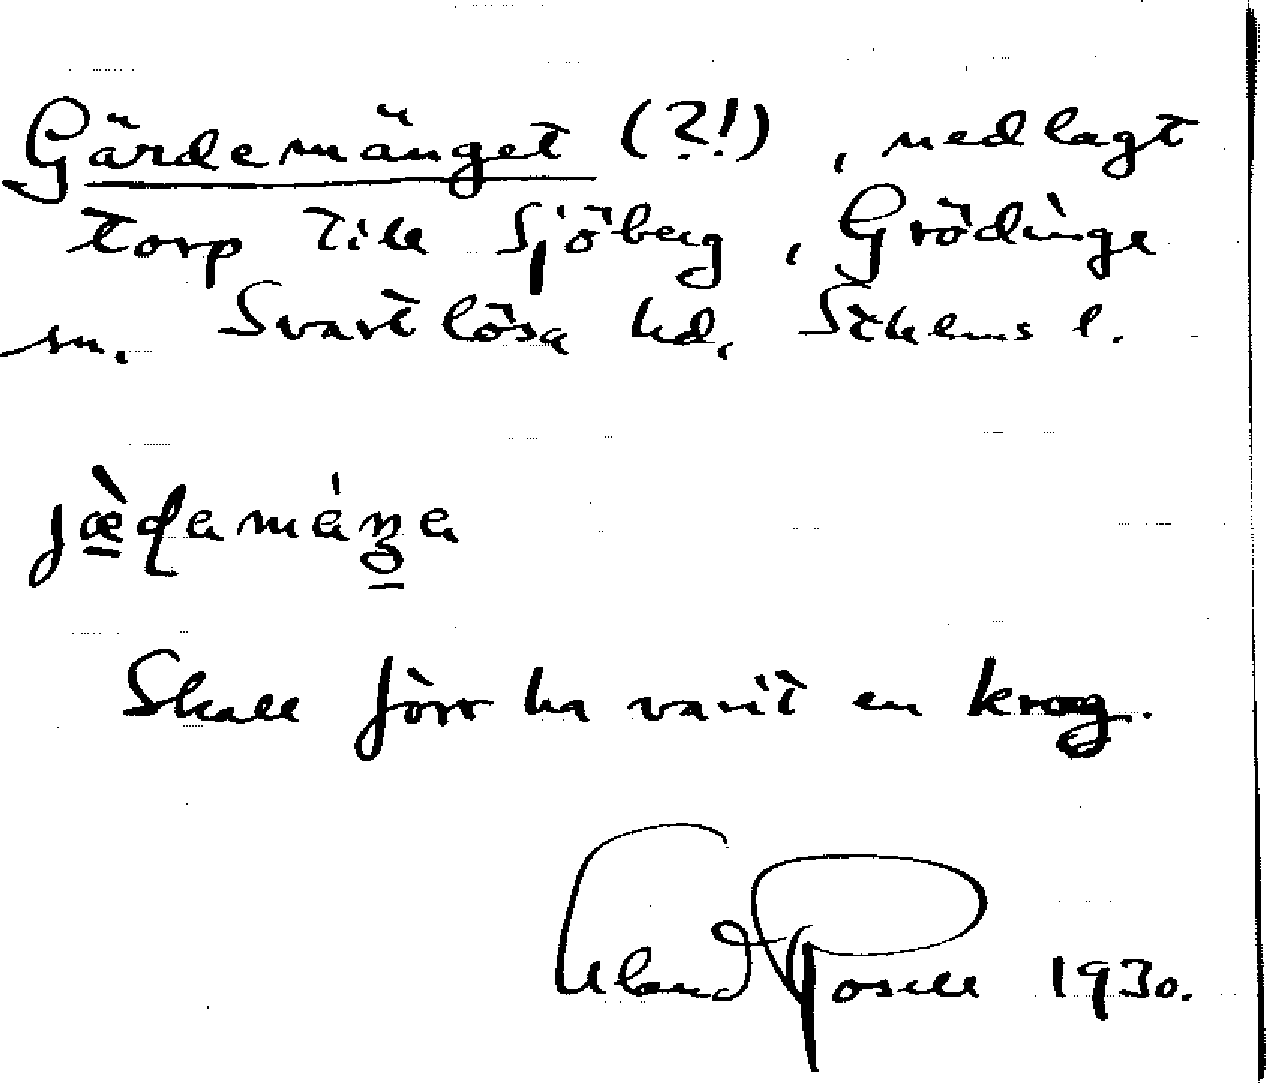 Gärdemänget (?!), nedlagt
torp till Sjöberg, Grödinge
sn. Svartlösa hd, Sthlms l.
Skall förr ha varit en krog.
Erland Rosell 1930.